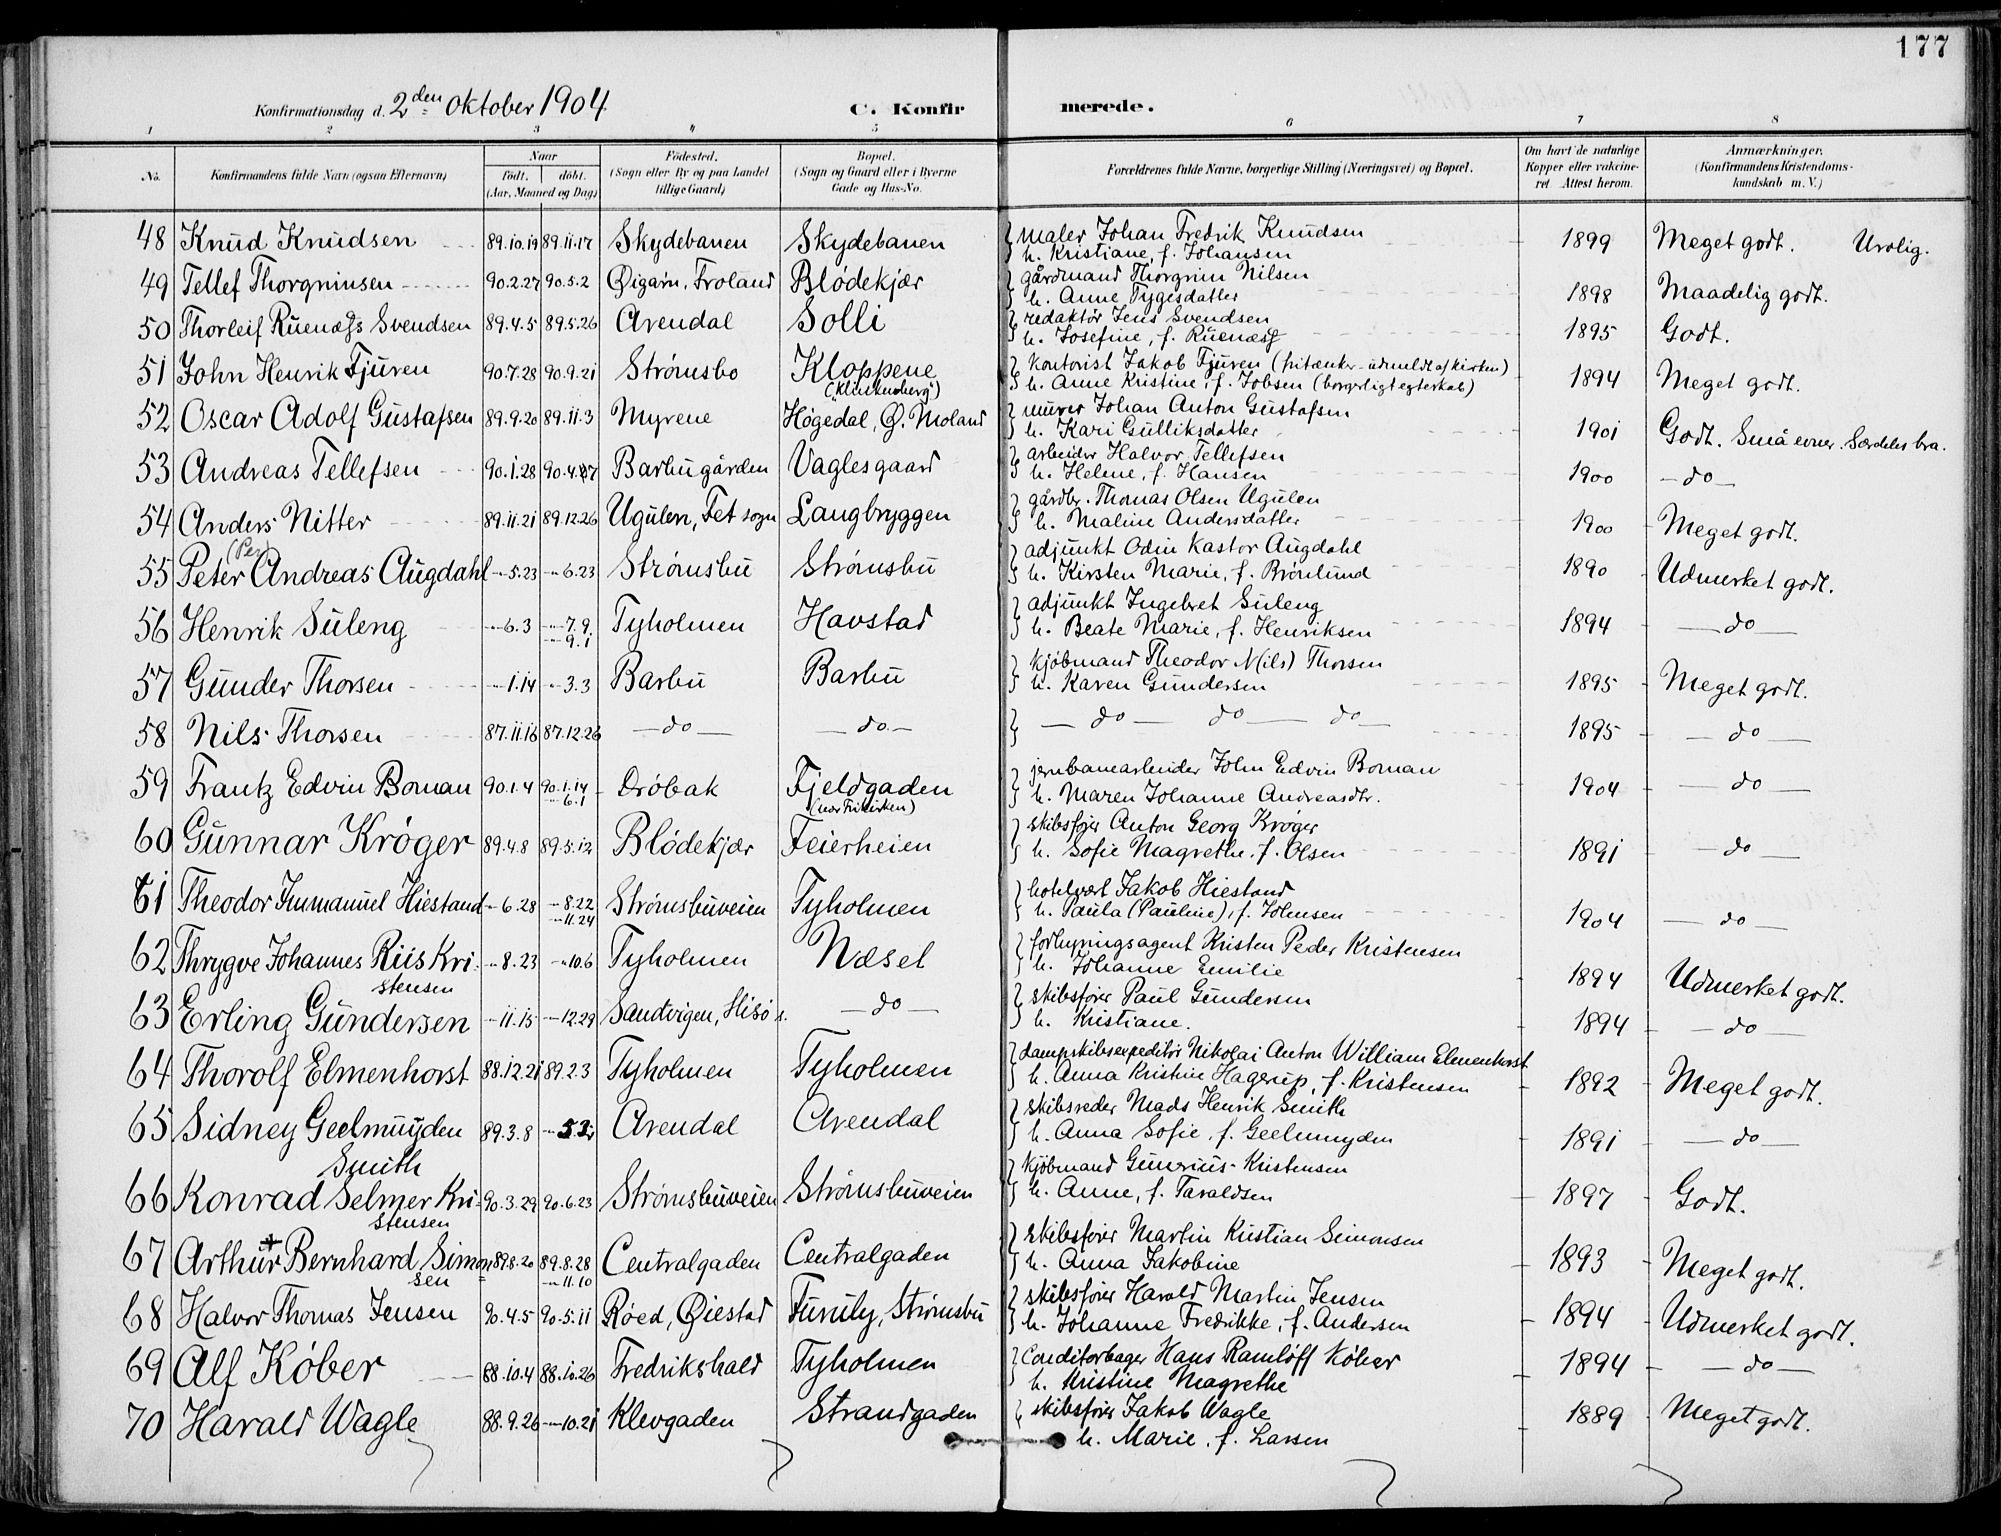 177
Konfirmationsdag d. 2den oktober 1904 C. Konfirmerede.
1 2 3 4 5 6 7 8
No. Konfirmandens fulde Navn (ogsaa Efternavn) Naar født. døbt. (Aar, Maaned og Dag) Fødested. (Sogn eller By og paa Landet tillige Gaard) Bopæl. (Sogn og Gaard eller i Byerne Gade og Hus-No. Forældrenes fulde Navne, borgerlige Stilling (Næringsvei) og Bopæl. Om havt de naturlige Kopper eller vakcineret. Attest herom. Anmærkninger. (Konfirmandens Kristendomskundskab m. V.)
48 Knud Knudsen 89.10.19 89.11.17 Skydebanen Skydebanen maler Johan Fredrik Knudsen 1899 Meget godt. Urolig.
h. Kristiane, f. Johansen
49 Tellef Thorgrimsen 90.2.27 90.5.2 Øigarn, Froland Blødekjær gårdmand Thorgrim Nilsen 1898 Maadelig godt.
h. Anne Tygesdatter
50 Thorleif Ruenæss Svendsen 89.4.5 89.5.26 Arendal Solli redaktør Jens Svendsen 1895 Godt.
h. Josefine, f. Ruenæss
51 John Henrik Fjuren 90.7.28 90.9.21 Strømsbo Kloppene kontorist Jakob Fjuren (fritænker - udmeldt af kirken) 1894 Meget godt.
("Klinkenberg") h. Anne Kristine, f. Jobsen (borgerligt egteskab)
52 Oscar Adolf Gustafsen 89.9.20 89.11.3 Myrene Høgedal, Ø. Moland murer Johan Anton Gustafsen 1901 Godt. Små evner. Særdeles bra.
h. Kari Gulliksdatter
53 Andreas Tellefsen 90.1.28 90.4.27 Barbugården Vaglesgaard arbeider Halvor Tellefsen 1900 — do —
h. Helene, f. Hansen
54 Anders Nitter 89.11.21 89.12.26 Ugulen, Fet sogn Langbryggen gårdbr. Thomas Olsen Ugulen 1900 Meget godt.
h. Maline Andersdatter
(Per)
55 Peter Andreas Augdahl -„-5.23 -„-6.23 Strømsbu Strømsbu adjunkt Odin Kastor Augdahl 1890 Udmerket godt.
h. Kirsten Marie, f. Brønlund
56 Henrik Suleng -„-6.3 -„-7.9 Tyholmen Havstad adjunkt Ingebret Suleng 1894 — do —
-„-9.1 h. Beate Marie, f. Henriksen
57 Gunder Thorsen -„-1.14 -„-3.3 Barbu Barbu kjøbmand Theodor N(ils) Thorsen 1895 Meget godt.
h. Karen Gundersen
58 Nils Thorsen 87.11.16 87.12.26 — do — — do. — — do — do — do — 1895 — do —
59 Frantz Edvin Boman 90.1.4 90.1.14 Drøbak Fjeldgaden jernbanearbeider John Edvin Boman 1904 — do —
-„-6.1 (nær Frikirken) h. Maren Johanne Andreasdtr.
60 Gunnar Krøger 89.4.8 89.5.12 Blødekjær Feierheien skibsfører Anton Georg Krøger 1891 — do —
h. Sofie Magrethe, f. Olsen
61 Theodor Immanuel Hiestand -„-6.28 -„-8.22 Strømsbuveien Tyholmen hotelvært Jakob Hiestand 1904 — do —
-„-11.24 h. Paula (Pauline), f. Johnsen
62 Thrygve Johannes Riis Kri- -„-8.23 -„-10.6 Tyholmen Næset forhyringsagent Kristen Peder Kristensen 1894 Udmerket godt.
stensen h. Johanne Emilie
63 Erling Gundersen -„-11.15 -„-12.29 Sandvigen, Hisø s. — do — skibsfører Paul Gundersen 1894 — do —
h. Kristiane.
64 Thorolf Elmenhorst 88.12.21 89.2.3 Tyholmen Tyholmen dampskibsexpeditør Nikolai Anton William Elmenhorst 1892 Meget godt.
h. Anna Kristine Hagerup, f. Kristensen
65 Sidney Geelmuyden 89.3.8 Arendal Arendal skibsreder Mads Henrik Smith 1891 — do —
Smith h. Anna Sofie, f. Geelmuyden
66 Konrad Selmer Kri- 90.3.29 90.6.23 Strømsbuveien Strømsbuveien kjøbmand Gunerius Kristensen 1897 Godt.
stensen h. Anne, f. Taraldsen
67 Arthur Bernhard Simon- 89.8.20 89.8.28 Centralgaden Centralgaden skibsfører Martin Kristian Simonsen 1893 Meget godt.
sen -„-11.10 h. Anna Jakobine
68 Halvor Thomas Jensen 90.4.5 90.5.11 Røed, Øiestad Furuly, Strømsbu skibsfører Harald Martin Jensen 1894 Udmerket godt.
h. Johanne Fredrikke, f. Andersen
69 Alf Køber 88.10.4 88.10.26 Fredrikshald Tyholmen Conditorbager Hans Ramløff Køber 1894 — do —
h. Kristine Magrethe
70 Harald Wagle 88.9.26 -„-10.21 Klevgaden Strandgaden skibsfører Jakob Wagle 1889 Meget godt.
h. Marie, f. Larsen